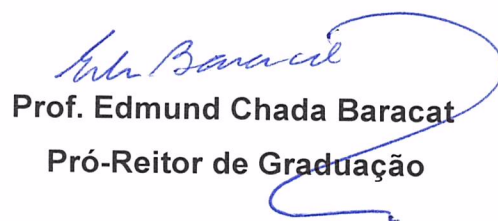 Prof. Edmund Chada Baracat
Pró-Reitor de Graduação